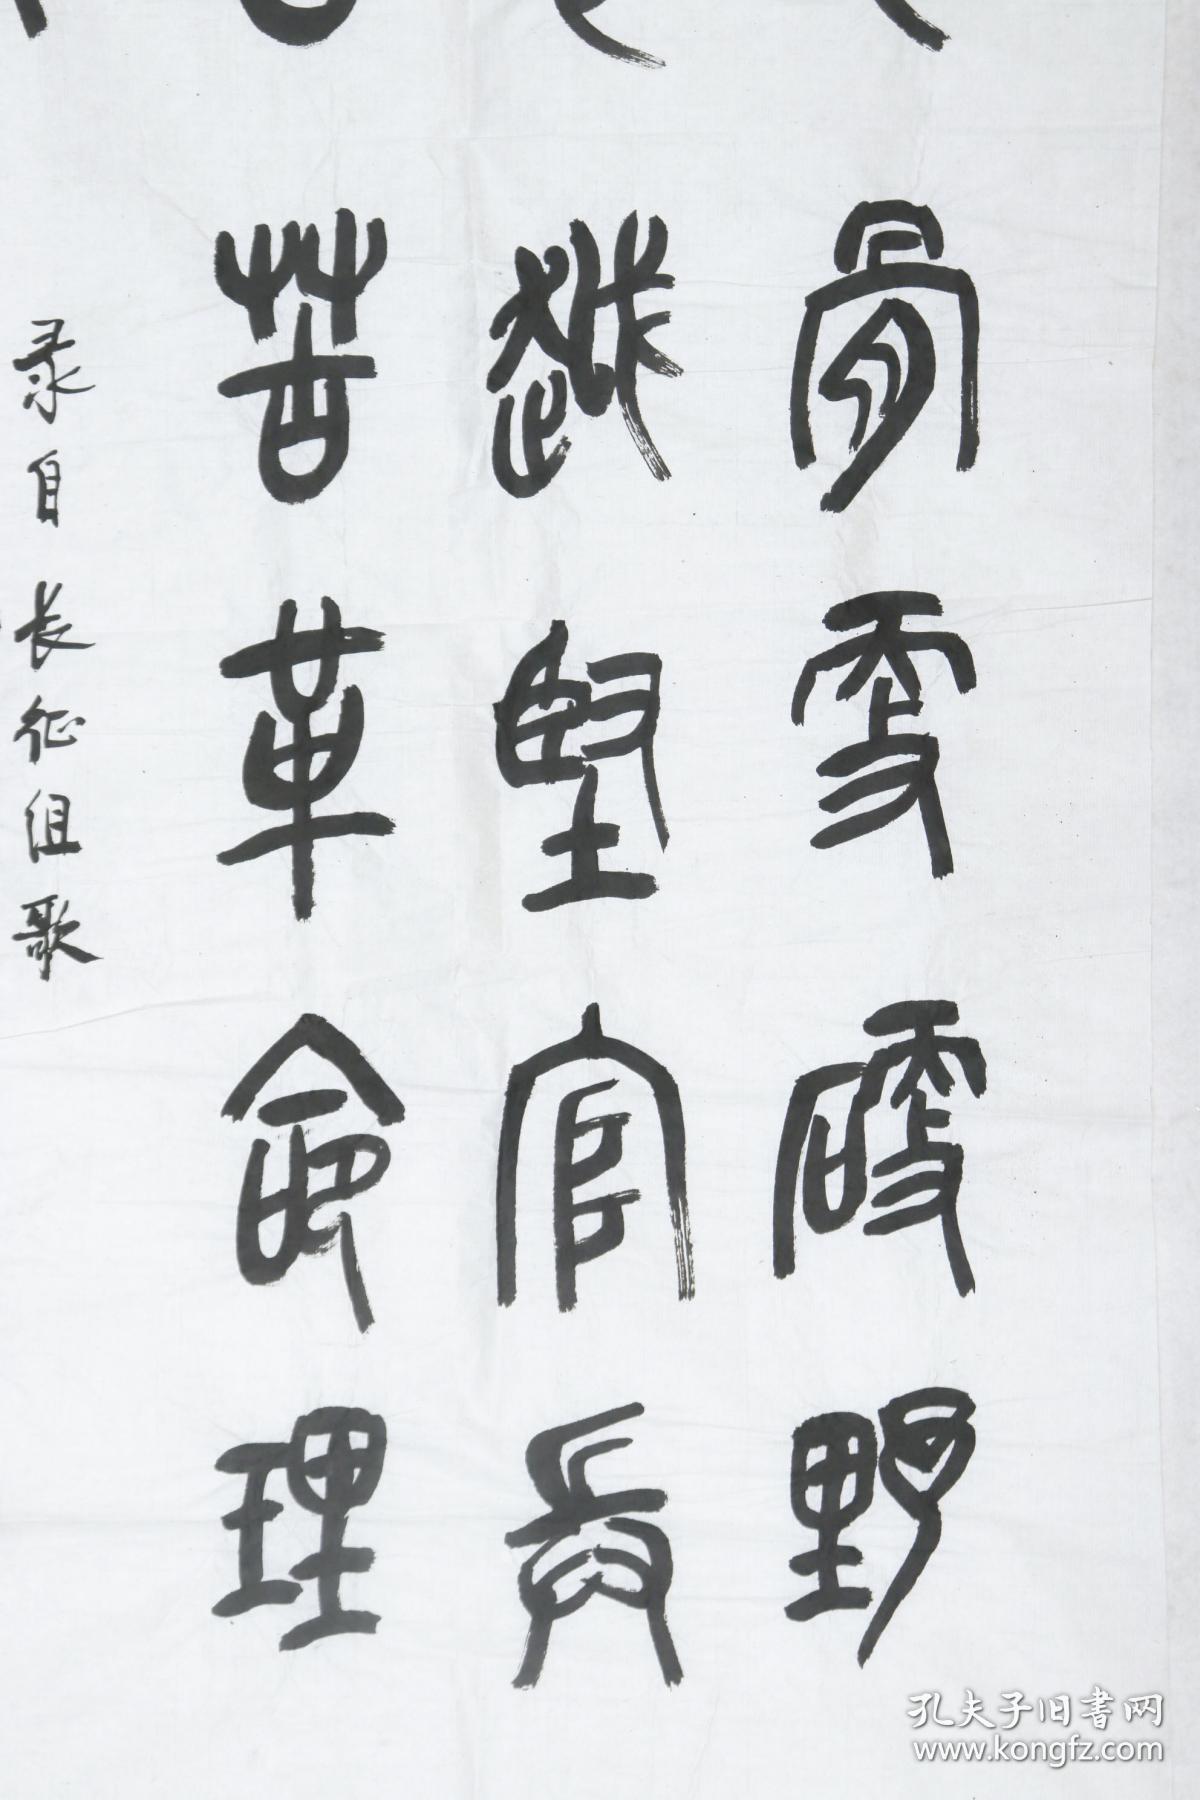 骨更硬野
越坚官兵
苦革命理
录自长征组歌
孔夫子旧书网
www.kongfz.com